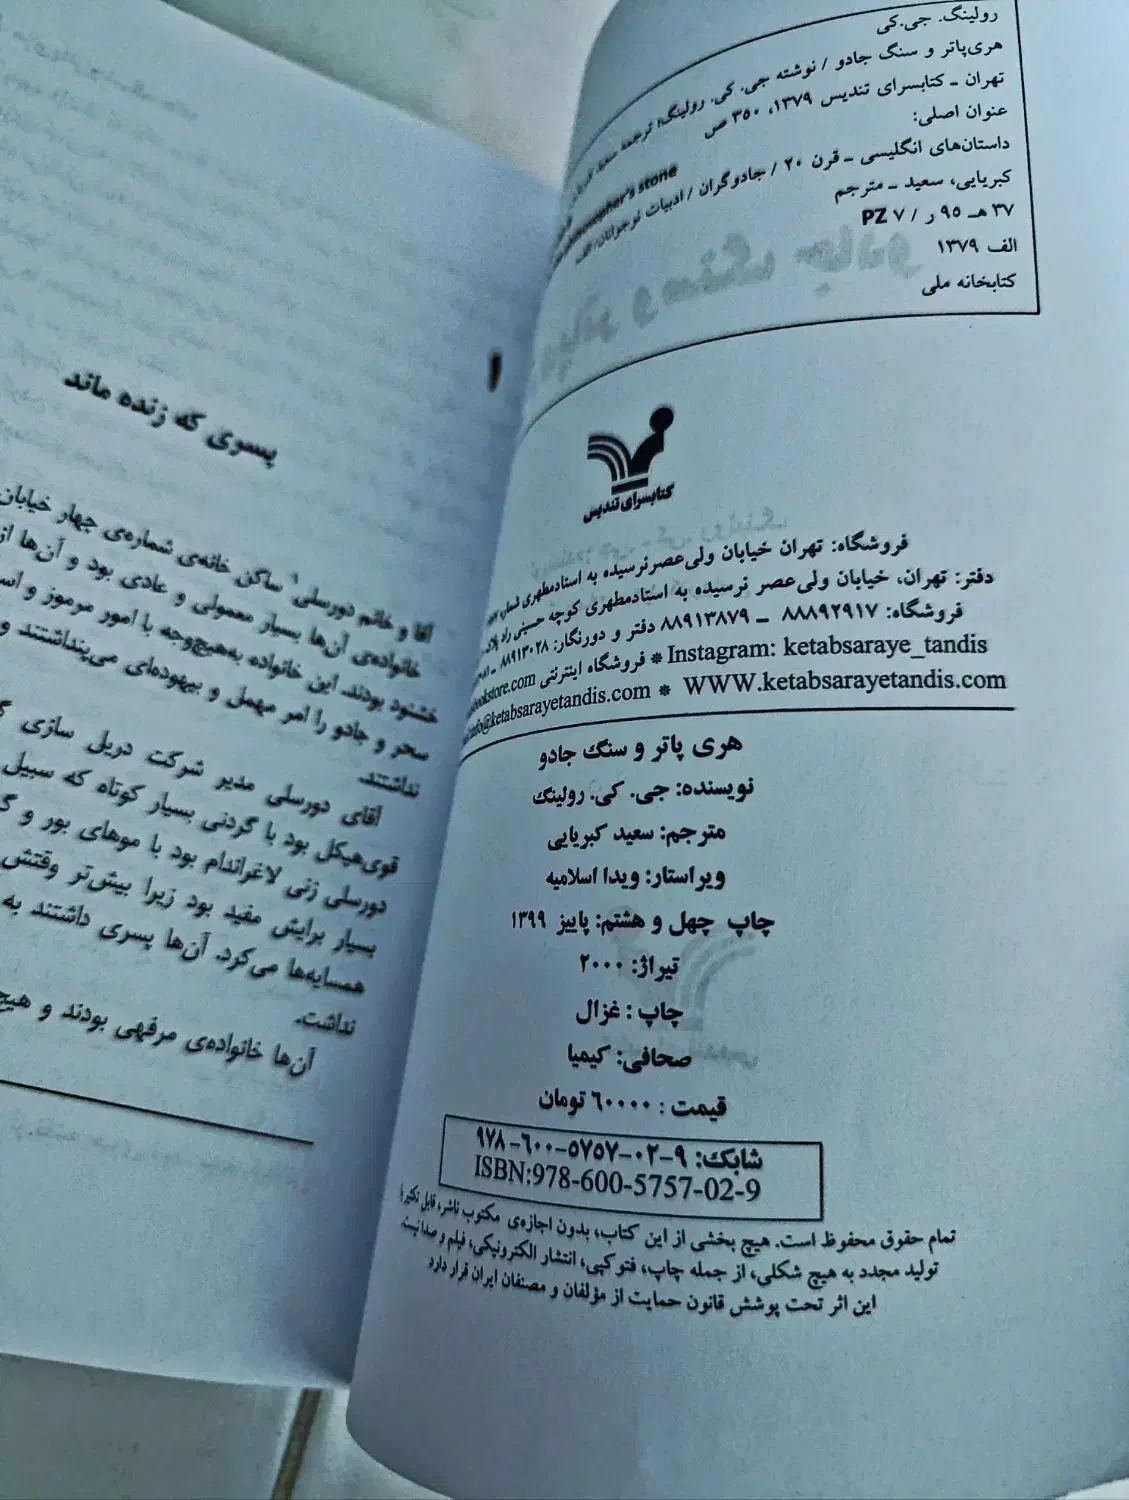 رولینگ. جی.کی
هری‌پاتر و سنگ جادو / نوشته جی. کی. رولینگ؛ ترجمه سعید
تهران ـ کتابسرای تندیس ۱۳۷۹، ۳۵۰ ص
عنوان اصلی:
philosopher's stone
داستان‌های انگلیسی ـ قرن ۲۰ / جادوگران / ادبیات نوجوانان/ الف.
کبریایی، سعید ـ مترجم
۳۷ هـ ۹۵ ر / PZ ۷
الف ۱۳۷۹
کتابخانه ملی
کتابسرای تندیس
فروشگاه: تهران خیابان ولی‌عصرنرسیده به استادمطهری شماره
دفتر: تهران، خیابان ولی‌عصر نرسیده به استادمطهری کوچه حسینی راد پلاک
فروشگاه: ۸۸۸۹۲۹۱۷ ـ ۸۸۹۱۳۸۷۹ دفتر و دورنگار: ۸۸۹۱۳۰۲۸
Instagram: ketabsaraye_tandis * فروشگاه اینترنتی
WWW.ketabsarayetandis.com * info@ketabsarayetandis.com
هری پاتر و سنگ جادو
نویسنده: جی. کی. رولینگ
مترجم: سعید کبریایی
ویراستار: ویدا اسلامیه
چاپ چهل و هشتم: پاییز ۱۳۹۹
تیراژ: ۲۰۰۰
چاپ : غزال
صحافی: کیمیا
قیمت : ۶۰۰۰۰ تومان
شابک: ۹-۰۲-۵۷۵۷-۶۰۰-۹۷۸
ISBN:978-600-5757-02-9
تمام حقوق محفوظ است. هیچ بخشی از این کتاب، بدون اجازه‌ی مکتوب ناشر، قابل تکثیر یا
تولید مجدد به هیچ شکلی، از جمله چاپ، فتوکپی، انتشار الکترونیکی، فیلم و صدا نیست.
این اثر تحت پوشش قانون حمایت از مؤلفان و مصنفان ایران قرار دارد
۱
پسری که زنده ماند
آقا و خانم دورسلی۱ ساکن خانه‌ی شماره‌ی چهار خیابان
خانواده‌ی آن‌ها بسیار معمولی و عادی بود و آن‌ها از
خشنود بودند. این خانواده به‌هیچ‌وجه با امور مرموز و
سحر و جادو را امر مهمل و بیهوده‌ای می‌پنداشتند و
نداشتند.
آقای دورسلی مدیر شرکت دریل سازی
قوی‌هیکل بود با گردنی بسیار کوتاه که سبیل
دورسلی زنی لاغراندام بود با موهای بور و
بسیار برایش مفید بود زیرا بیش‌تر وقتش
همسایه‌ها می‌کرد. آن‌ها پسری داشتند به
نداشت.
آن‌ها خانواده‌ی مرفهی بودند و